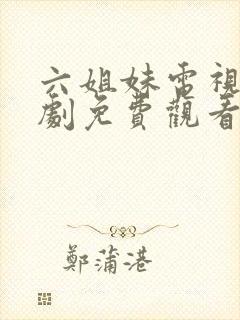 六姐妹電視
劇免費觀看
鄭蒲港